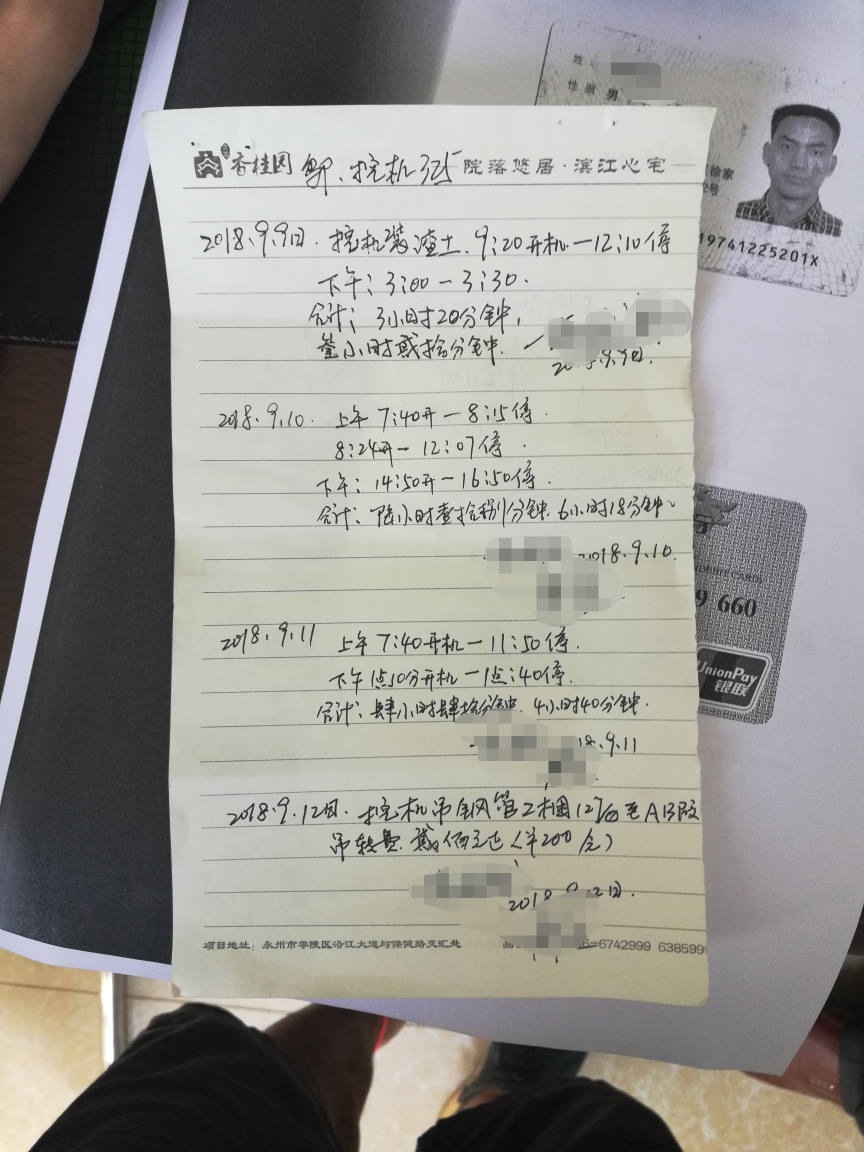 香桂园 挖机325 院落悠居·滨江心宅
2018.9.9日. 挖机装渣土. 9:20开机—12:10停
下午: 3:00—3:30.
合计: 3小时20分钟,
叁小时贰拾分钟.
9.9日.
2018.9.10. 上午 7:40开—8:15停.
8:24开—12:07停.
下午: 14:50开—16:50停.
合计: 小时壹拾捌分钟. 6小时18分钟
2018.9.10.
2018.9.11 上午 7:40开机—11:50停.
下午1点10分开机—1点:40停.
合计: 肆小时肆拾分钟. 4小时40分钟.
18.9.11
2018.9.12日. 挖机吊钢管2捆 至AB段
吊转费. 贰佰元正(¥200元)
2018 2日.
项目地址: 永州市零陵区沿江大道与保健路交汇处
6=6742999 6385999
姓
性别 男
徐家
2号
19741225201X
DEBIT CARD
9 660
UnionPay
银联